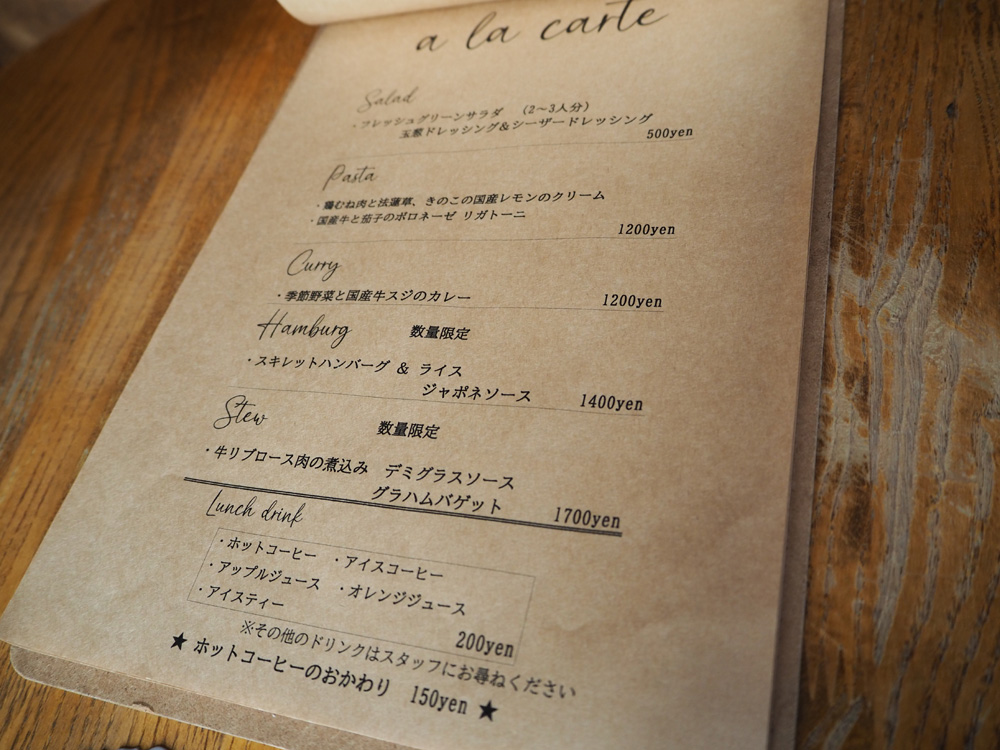 a la carte
Salad
・フレッシュグリーンサラダ （2〜3人分）
玉葱ドレッシング&シーザードレッシング
500yen
Pasta
・鶏むね肉と法蓮草、きのこの国産レモンのクリーム
・国産牛と茄子のボロネーゼ リガトーニ
1200yen
Curry
・季節野菜と国産牛スジのカレー 1200yen
Hamburg 数量限定
・スキレットハンバーグ & ライス
ジャポネソース 1400yen
Stew 数量限定
・牛リブロース肉の煮込み デミグラスソース
グラハムバゲット 1700yen
Lunch drink
・ホットコーヒー ・アイスコーヒー
・アップルジュース ・オレンジジュース
・アイスティー
200yen
※その他のドリンクはスタッフにお尋ねください
★ ホットコーヒーのおかわり 150yen ★